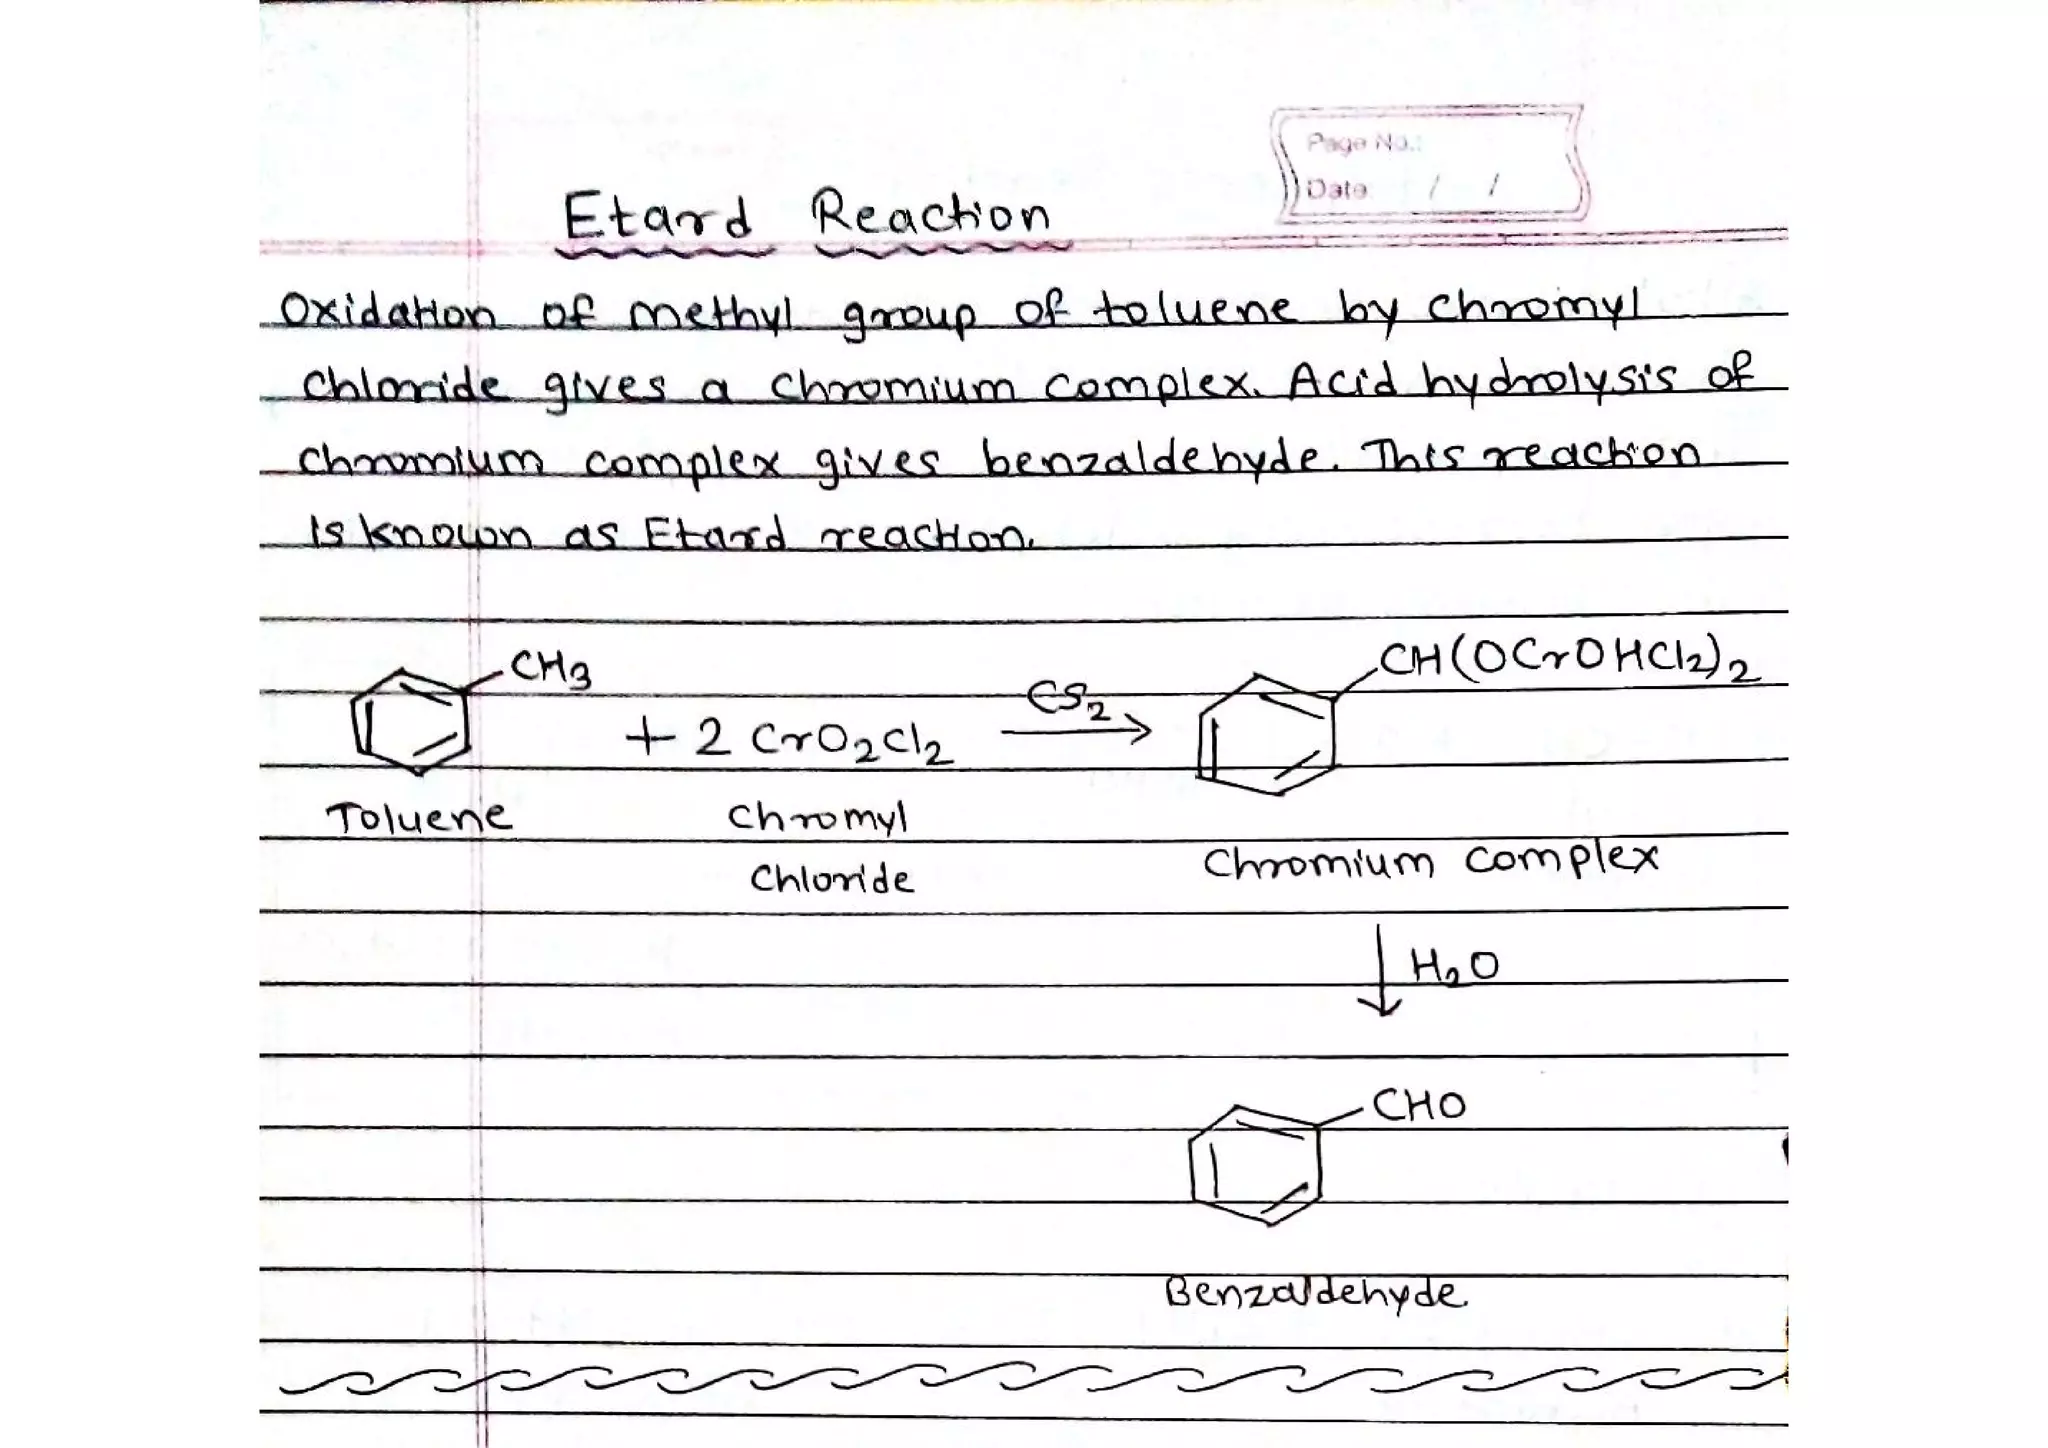 Page No.:
Date / /
Etard Reaction
Oxidation of methyl group of toluene by chromyl
chloride gives a chromium complex. Acid hydrolysis of
chromium complex gives benzaldehyde. This reaction
is known as Etard reaction.
CH3
CH(OCrOHCl2)2
+ 2 CrO2Cl2
CS2
Toluene
Chromyl
Chloride
Chromium complex
H2O
CHO
Benzaldehyde